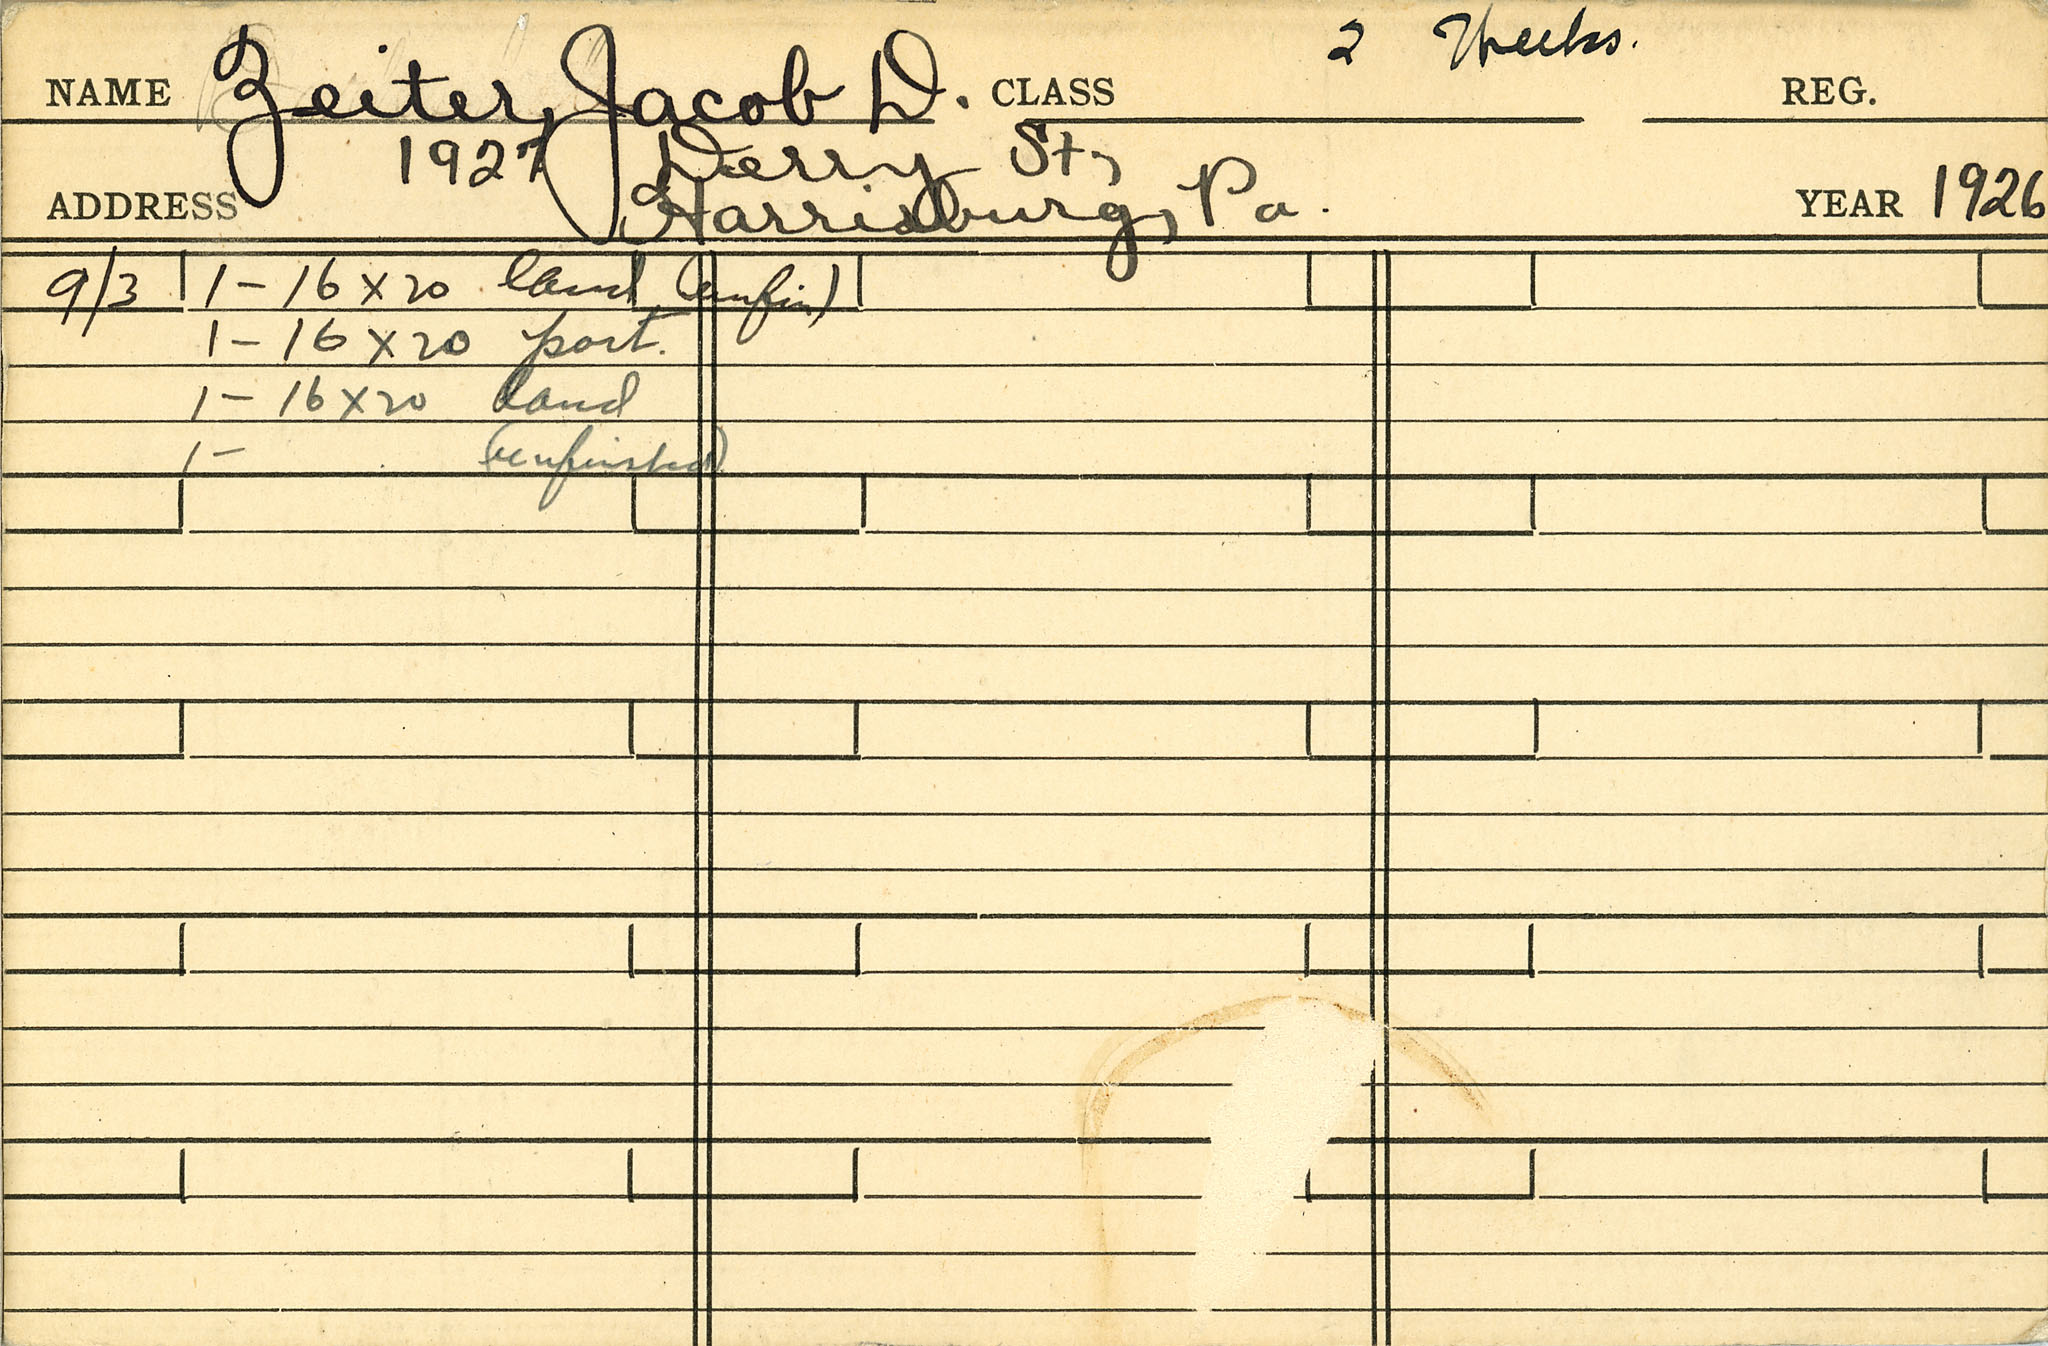 2 Weeks.
NAME Zeiter, Jacob D. CLASS REG.
1927 Derry St,
ADDRESS Harrisburg, Pa. YEAR 1926
9/3 1-16x20 land (unfin)
1-16x20 port.
1-16x20 land
1- (unfinished)